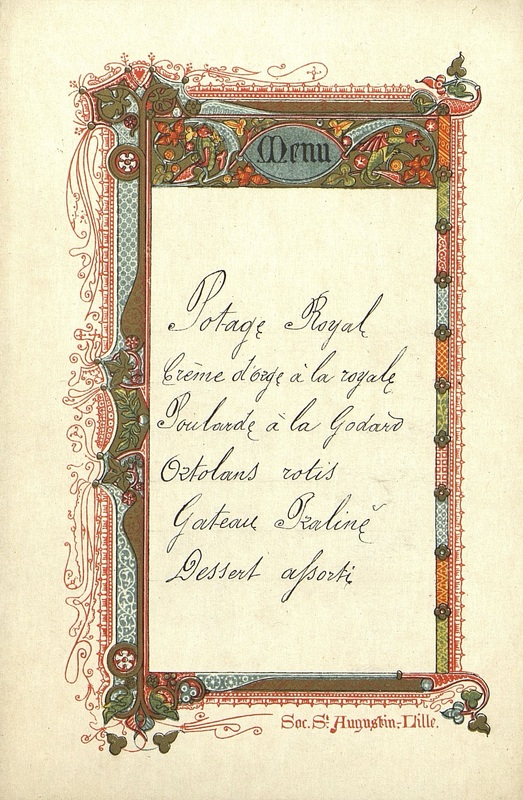 Menu
Potage Royal
Crème d'orge à la royale
Poularde à la Godard
Ortolans rotis
Gateau Praliné
Dessert assorti
Soc. St. Augustin-Lille.